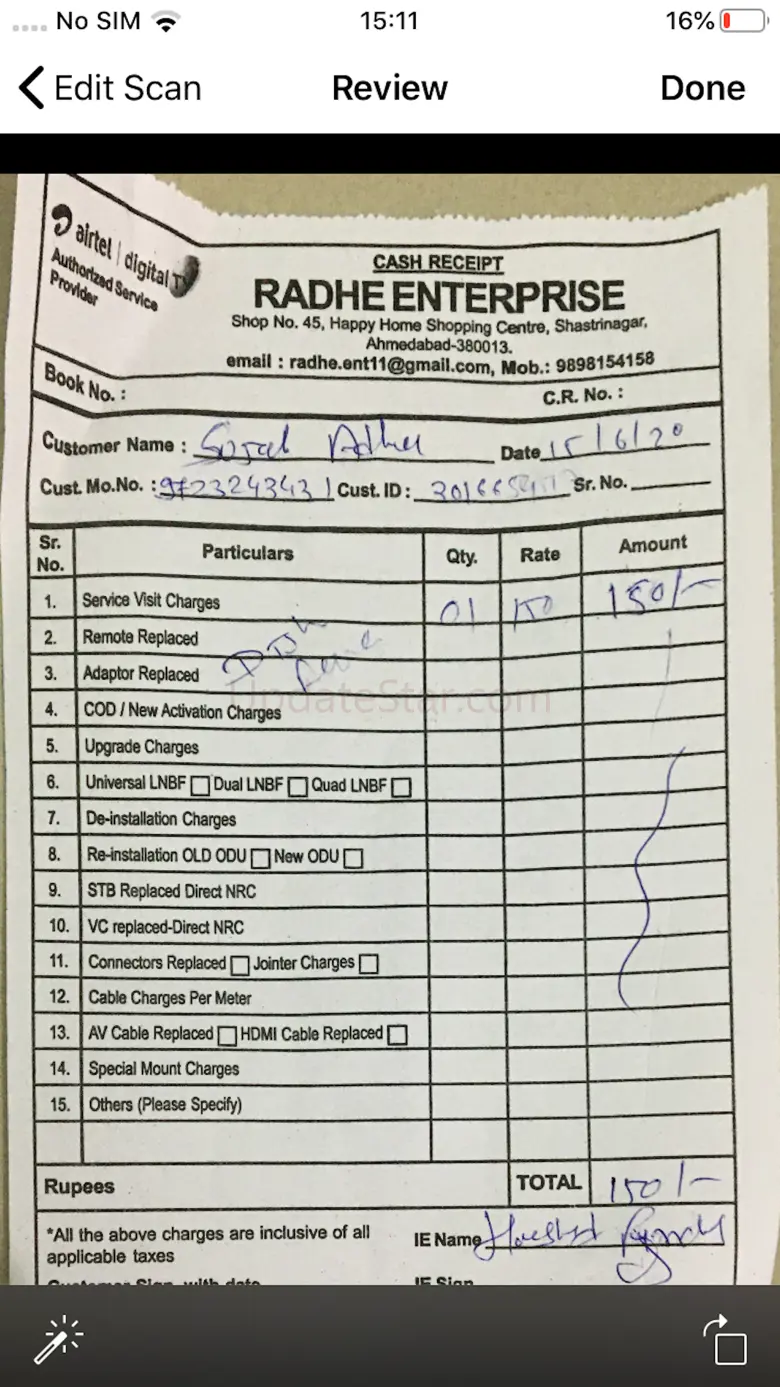 No SIM 15:11 16%
Edit Scan Review Done
airtel | digital TV
Authorized Service
Provider
CASH RECEIPT
RADHE ENTERPRISE
Shop No. 45, Happy Home Shopping Centre, Shastrinagar,
Ahmedabad-380013.
email : radhe.ent11@gmail.com, Mob.: 9898154158
Book No. :
C.R. No. :
Customer Name : Date 15/6/20
Cust. Mo.No. : 9723243431 Cust. ID : Sr. No.
Sr. No. Particulars Qty. Rate Amount
1. Service Visit Charges 01 150 150/-
2. Remote Replaced
3. Adaptor Replaced
UpdateStar.com
4. COD / New Activation Charges
5. Upgrade Charges
6. Universal LNBF Dual LNBF Quad LNBF
7. De-installation Charges
8. Re-installation OLD ODU New ODU
9. STB Replaced Direct NRC
10. VC replaced-Direct NRC
11. Connectors Replaced Jointer Charges
12. Cable Charges Per Meter
13. AV Cable Replaced HDMI Cable Replaced
14. Special Mount Charges
15. Others (Please Specify)
Rupees TOTAL 150/-
*All the above charges are inclusive of all
applicable taxes
IE Name
Customer Sign. with date
IE Sign